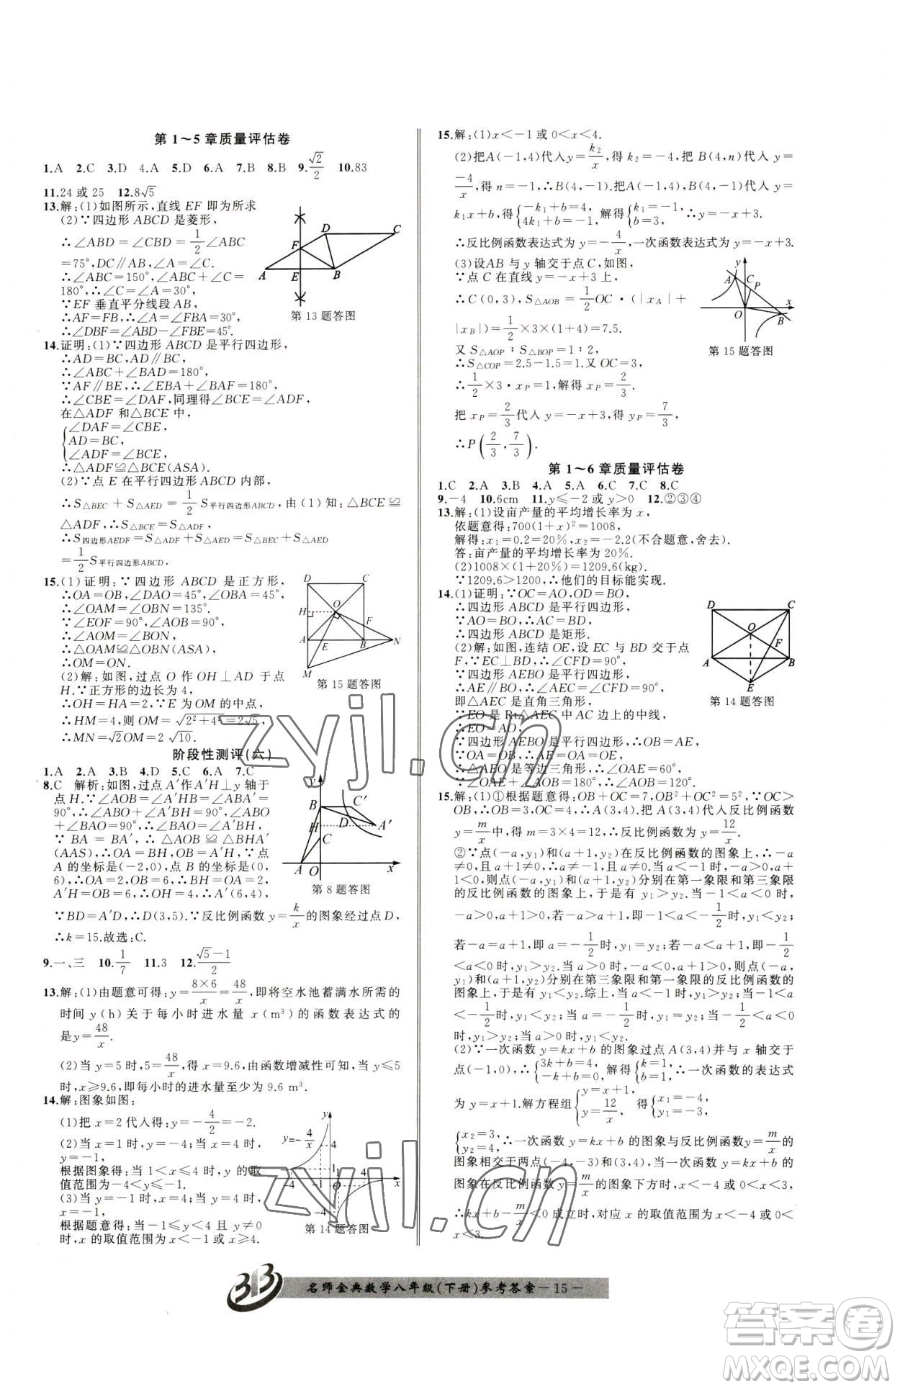 第 1～5 章质量评估卷
1.A 2.C 3.D 4.A 5.D 6.A 7.B 8.B 9.√2/2 10.83
11.24 或 25 12.8√5
13.解:(1)如图所示,直线 EF 即为所求
(2)∵四边形 ABCD 是菱形,
∴∠ABD=∠CBD=1/2∠ABC
=75°,DC∥AB,∠A=∠C.
∴∠ABC=150°,∠ABC+∠C=
180°,∴∠C=∠A=30°.
∵EF 垂直平分线段 AB,
∴AF=FB,∴∠A=∠FBA=30°,
∴∠DBF=∠ABD-∠FBE=45°.
第 13 题答图
14.证明:(1)∵四边形 ABCD 是平行四边形,
∴AD=BC,AD∥BC,
∴∠ABC+∠BAD=180°,
∵AF∥BE,∴∠EBA+∠BAF=180°,
∴∠CBE=∠DAF,同理得∠BCE=∠ADF,
在△ADF 和△BCE 中,
∠DAF=∠CBE,
AD=BC,
∠ADF=∠BCE,
∴△ADF≌△BCE(ASA).
(2)∵点 E 在平行四边形 ABCD 内部,
∴S△BEC+S△AED=1/2S平行四边形ABCD,由(1)知:△BCE≌
△ADF,∴S△BCE=S△ADF,
∴S四边形AEDF=S△ADF+S△AED=S△BEC+S△AED=
1/2S平行四边形ABCD
15.(1)证明:∵四边形 ABCD 是正方形,
∴OA=OB,∠DAO=45°,∠OBA=45°,
∴∠OAM=∠OBN=135°.
∵∠EOF=90°,∠AOB=90°,
∴∠AOM=∠BON,
∴△OAM≌△OBN(ASA),
∴OM=ON.
(2)解:如图,过点 O 作 OH⊥AD 于点
H.∵正方形的边长为 4,
∴OH=HA=2,∵E 为 OM 的中点,
∴HM=4,则 OM=√2²+4²=2√5,
∴MN=√2OM=2√10.
第 15 题答图
阶段性测评(六)
1.A 2.A 3.B 4.D 5.C 6.A 7.C
8.C 解析:如图,过点 A′作 A′H⊥y 轴于
点 H.∵∠AOB=∠A′HB=∠ABA′=90°,
∴∠ABO+∠A′BH=90°,∠ABO
+∠BAO=90°,∴∠BAO=∠A′BH,
∵BA=BA′,∴△AOB≌△BHA′
(AAS),∴OA=BH,OB=A′H,∵点
A 的坐标是(-2,0),点 B 的坐标是(0,
6),∴OA=2,OB=6,∴BH=OA=2,
A′H=OB=6,∴OH=4,∴A′(6,4),
∵BD=A′D,∴D(3,5),∵反比例函数 y=k/x的图象经过点 D,
∴k=15.故选:C.
第 8 题答图
9.一、三 10.1/7 11.3 12.(√5-1)/2
13.解:(1)由题意可得:y=8×6/x=48/x,即将空水池蓄满水所需的
时间 y(h)关于每小时进水量 x(m³)的函数表达式的
是y=48/x
(2)当 y=5 时,5=48/x,得 x=9.6,由函数增减性可知,当 y≤5
时,x≥9.6,即每小时的进水量至少为 9.6 m³.
14.解:图象如图:
(1)把 x=2 代入得:y=-4/2=-2.
(2)当 x=1 时,y=-4;当 x=4 时,y=-1,
根据图象得:当 1<x≤4 时,y 的取
值范围为-4<y≤-1.
(3)当 y=4 时,x=-1,
根据题意得:当-1≤y<4 且
y≠0 时,x 的取值范围为 x<-1 或 x≥4.
第 14 题答图
15.解:(1)x<-1 或 0<x<4.
(2)把A(-1,4)代入y=k₂/x,得 k₂=-4,∴y=-4/x,把 B(4,n)代入 y=
-4/x,得 n=-1,∴B(4,-1).把 A(-1,4),B(4,-1)代入y=
k₁x+b,得{-k₁+b=4, 4k₁+b=-1,解得{k₁=-1, b=3,∴y=-x+3.
∴反比例函数表达式为y=-4/x,一次函数表达式为y=-x+3.
(3)设AB 与 y 轴交于点 C,如图,
∵点 C 在直线 y=-x+3 上,
∴C(0,3),S△AOB=1/2OC·(|xA|+
|xB|)=1/2×3×(1+4)=7.5.
又 S△AOP:S△BOP=1:2,
∴S△COP=2.5-1.5=1.又OC=3,
∴1/2×3·xP=1,解得 xP=2/3.
把 xP=2/3代入 y=-x+3,得 yP=7/3,
∴P(2/3,7/3).
第 15 题答图
第 1～6 章质量评估卷
1.C 2.A 3.D 4.C 5.A 6.C 7.C 8.C
9.-4 10.6cm 11.y≤-2 或 y>0 12.②③④
13.解:(1)设亩产量的平均增长率为 x,
依题意得:700(1+x)²=1008,
解得:x₁=0.2=20%,x₂=-2.2(不合题意,舍去).
答:亩产量的平均增长率为 20%.
(2)1008×(1+20%)=1209.6(kg).
∵1209.6>1200,∴他们的目标能实现.
14.(1)证明:∵OC=AO,OD=BO,
∴四边形 ABCD 是平行四边形,
∵AO=BO,∴AC=BD,
∴四边形 ABCD 是矩形.
(2)解:如图,连结 OE,设 EC 与 BD 交于点
F.∵EC⊥BD,∴∠CFO=90°,
∵四边形 AEBO 是平行四边形,
∴AE∥BO,∴∠AEC=∠CFO=90°,
即△AEC 是直角三角形.
∵EO 是 Rt△AEC 中 AC 边上的中线,
∴EO=AO,
∵四边形 AEBO 是平行四边形,∴OB=AE,
∵OA=OB,∴AE=OA=OE,
∴△AEO 是等边三角形,∴∠OAE=60°.
∴∠ACE=90°-∠OAE=30°.
第 14 题答图
15.解:(1)①根据题意得:OB+OC=7,OB²+OC²=5²,∵OC>
OB,∴OB=3,OC=4,∴A(3,4),把A(3,4)代入反比例函数
y=m/x中,得 m=3×4=12,∴反比例函数为 y=12/x.
②∵点(-a,y₁)和(a+1,y₂)在反比例函数的图象上,∴-a
≠0,且 a+1≠0,∴a≠-1,且 a≠0,∴当 a<-1 时,-a>0,a+
1<0,则点(-a,y₁)和(a+1,y₂)分别在第一象限和第三象限
的反比例函数的图象上,于是有 y₁>y₂;当-1<a<0 时,若
-a>a+1,即-1<a<-1/2时,y₁<y₂;
若-a=a+1,即 a=-1/2时,y₁=y₂;若-a<a+1,即-1/2
<a<0 时,y₁>y₂;当 a>0 时,-a<0,a+1>0,
则点(-a,y₁)和(a+1,y₂)分别在第三象限和第一象限的反比例函数的
图象上,于是有 y₁<y₂.
(2)∵一次函数 y=kx+b 的图象过点 A(3,4)与 x 轴交于
点(-1,0),∴{3k+b=4, -k+b=0,解得{k=1, b=1,∴一次函数的表达式
为 y=x+1.解方程组{y=x+1, y=12/x,得{x₁=-4, y₁=-3,
{x₂=3, y₂=4,∴一次函数 y=kx+b 的图象与反比例函数 y=m/x的
图象相交于两点(-4,-3)和(3,4),当一次函数 y=kx+b 的图
象在反比例函数 y=m/x的图象下方时,x<-4 或 0<x<3,
∴若要使 m/x-kx-b>0 成立时,对应 x 的取值范围为 x<-4 或 0<x<3.
名师金典数学八年级(下册)参考答案—15—
zyjl.cn
zyjl.cn
答案圈
MXQE.COM